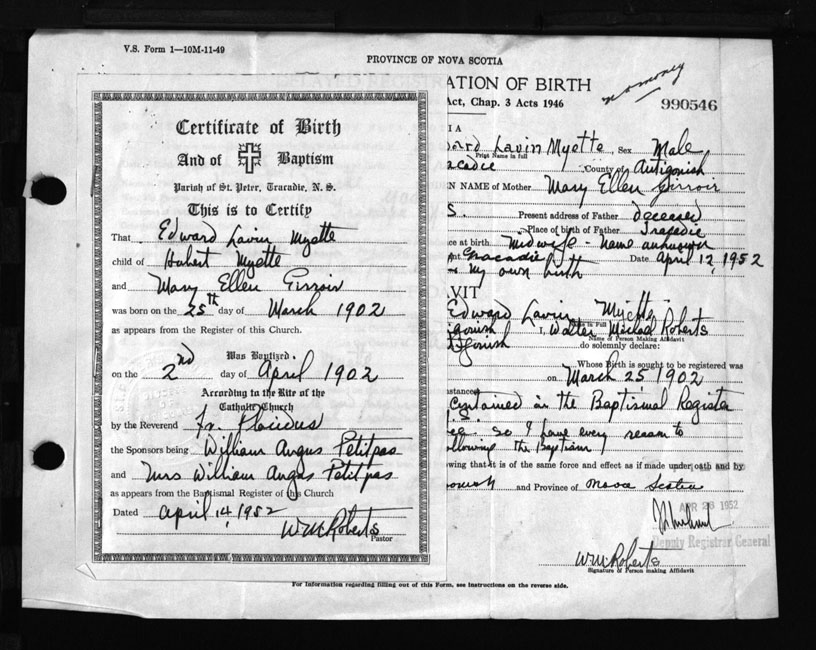 V.S. Form 1—10M-11-49
PROVINCE OF NOVA SCOTIA
ATION OF BIRTH
Act, Chap. 3 Acts 1946
no money
990546
Certificate of Birth
And of Baptism
Parish of St. Peter, Tracadie, N. S.
This is to Certify
That Edward Lavin Myette
child of Hubert Myette
and Mary Ellen Girroir
was born on the 25th day of March 1902
as appears from the Register of this Church.
Was Baptized
on the 2nd day of April 1902
According to the Rite of the
Catholic Church
by the Reverend Fr. Placidus
the Sponsors being William Angus Petitpas
and Mrs William Angus Petitpas
as appears from the Baptismal Register of this Church
Dated April 14, 1952
W M Roberts
Pastor
IA
ward Lavin Myette Sex Male
Print Name in full
racadie County of Antigonish
N NAME of Mother Mary Ellen Girroir
S. Present address of Father deceased
Place of birth of Father Tracadie
ce at birth Midwife - name unknown
nt Tracadie Date April 12, 1952
my own birth
AVIT
Edward Lavin
Name in Full
tigonish I, Walter Macleod Roberts
Name of Person Making Affidavit
tigonish do solemnly declare:
Whose Birth is sought to be registered was
on March 25 1902
nstances
contained in the Baptismal Register
so I have every reason to
ollowing the Baptism
owing that it is of the same force and effect as if made under oath and by
onish and Province of Nova Scotia
APR 26 1952
Deputy Registrar General
W M Roberts
Signature of Person making Affidavit
For Information regarding filling out of this Form, see Instructions on the reverse side.